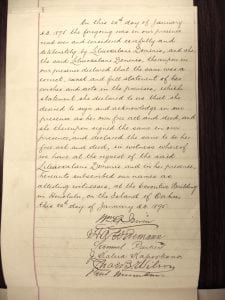 On this 24th day of January
A.D. 1895 the foregoing was in our presence
read over and considered carefully and
deliberately by Liliuokalani Dominis, and she
the said Liliuokalani Dominis, thereupon in
our presence declared that the same was a
correct, exact and full statement of her
wishes and acts in the premises, which
statement she declared to us that she
desired to sign and acknowledge in our
presence as her own free act and deed, and
she thereupon signed the same in our
presence, and declared the same to be her
free act and deed, in witness whereof
we have at the request of the said
Liliuokalani Dominis and in her presence,
hereunto subscribed our names as
attesting witnesses, at the Executive Building
in Honolulu, on the Island of Oahu
this 24th day of January A.D. 1895.
Wm G. Irwin
H. A. Widemann
Samuel Parker
J. Kalua Kahookano
Chas B. Wilson
Paul Neumann